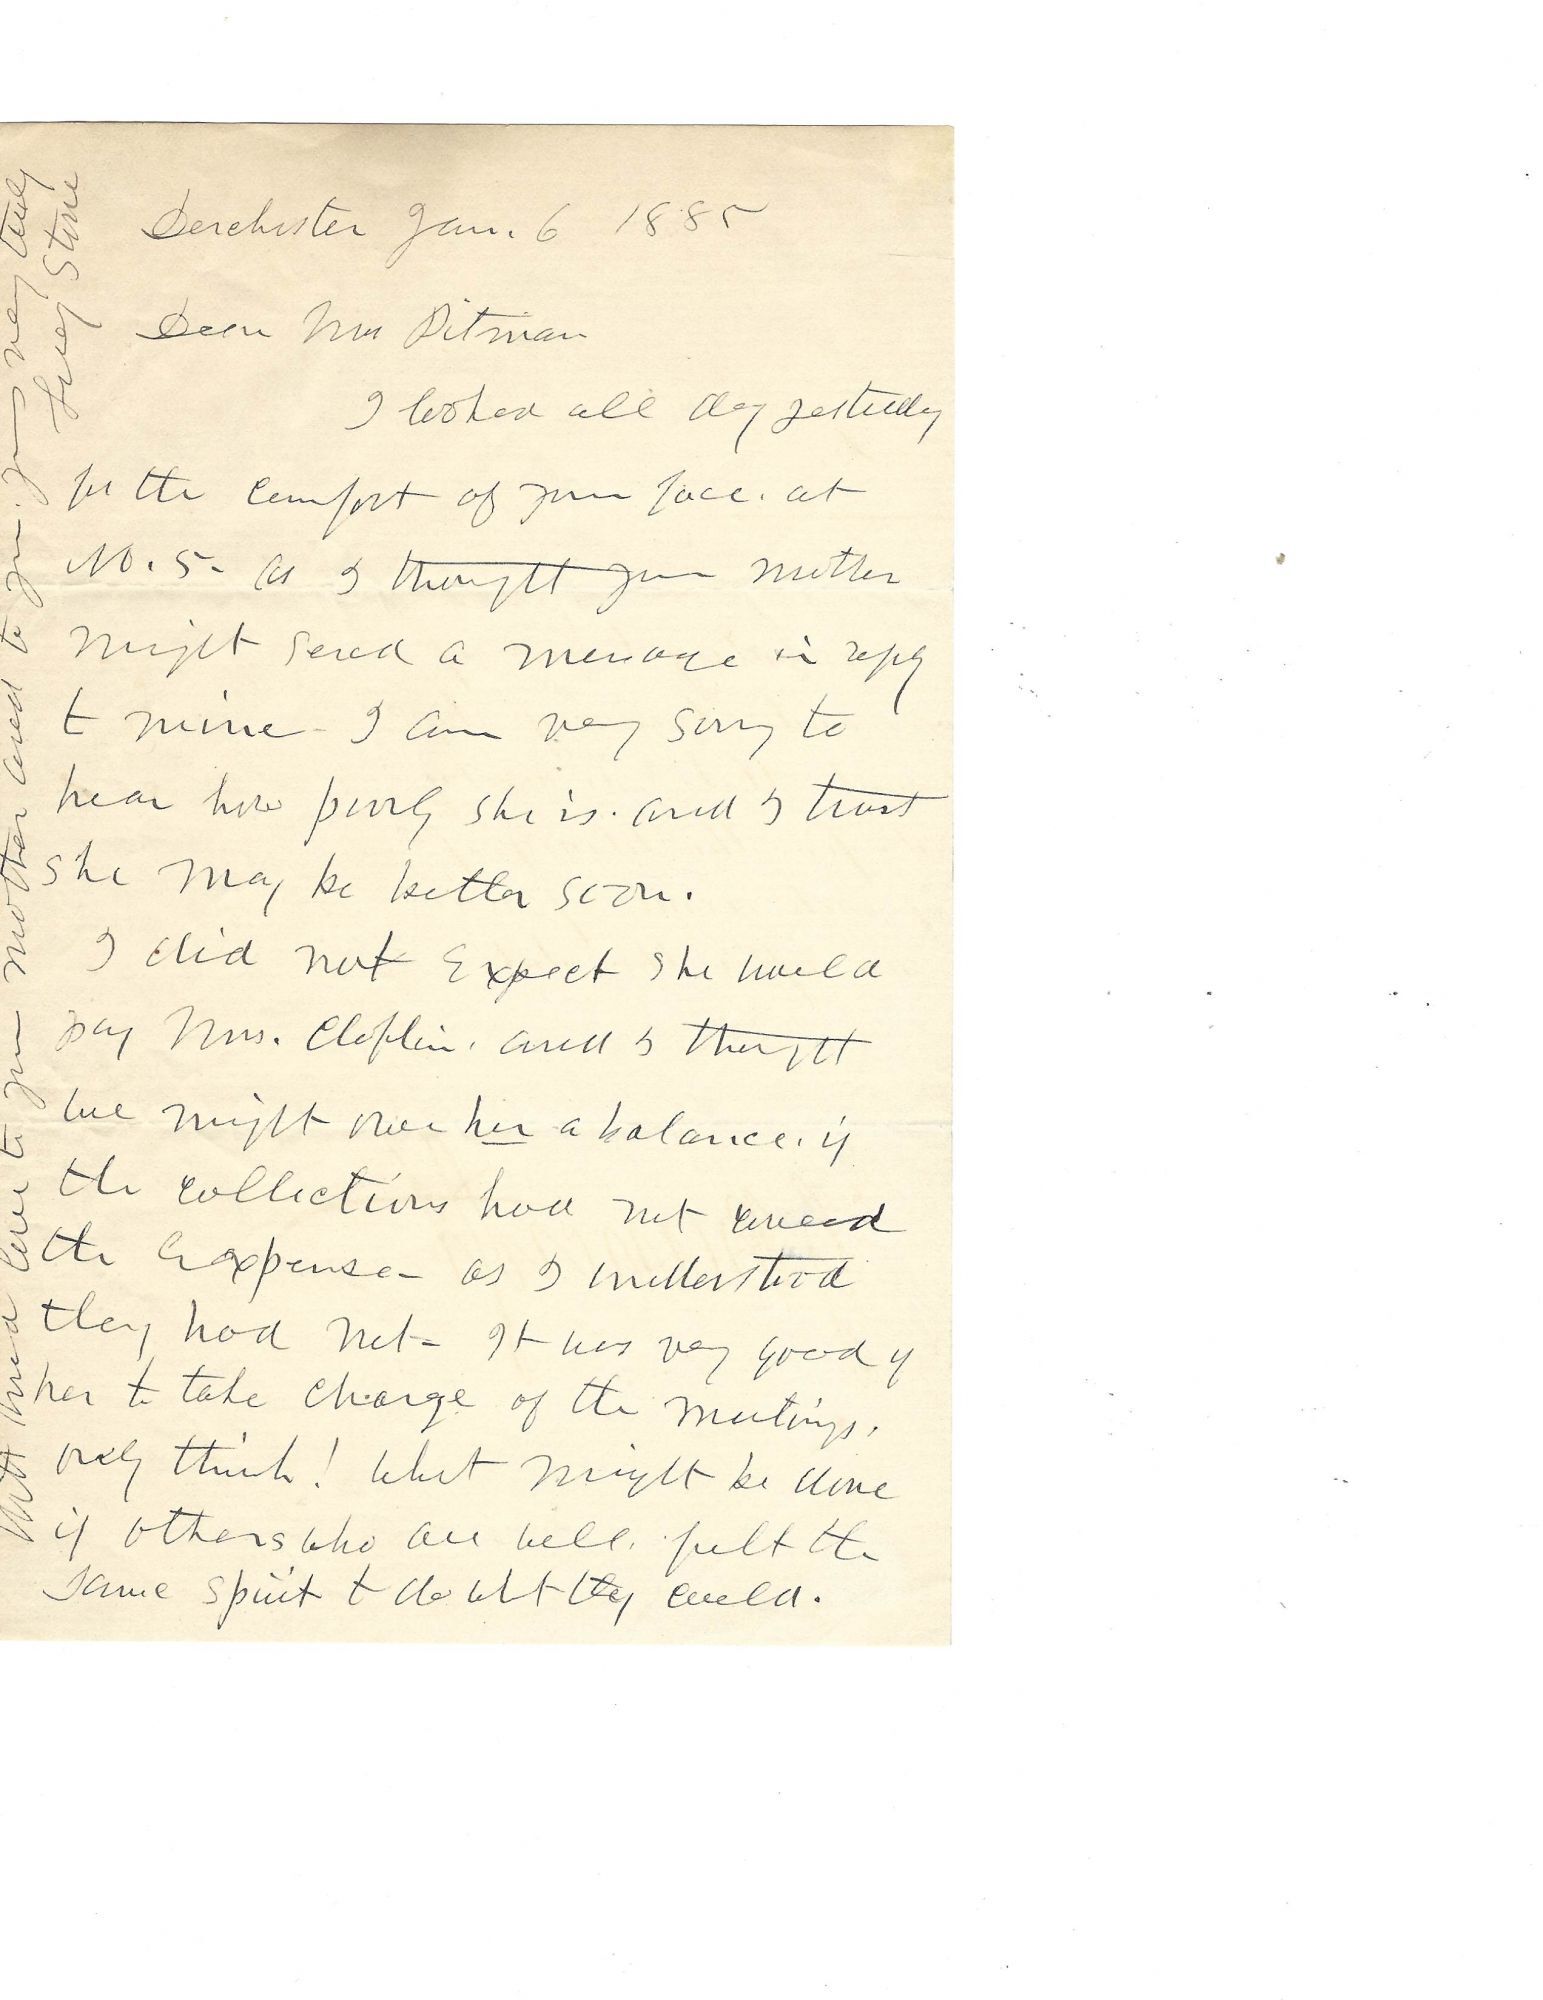 Dorchester Jan. 6 1885
Dear Mrs Pitman
I looked all day yesterday
for the comfort of your face. at
No. 5- as I thought your mother
might send a message in reply
to mine - I am very sorry to
hear how poorly she is. and I trust
she may be better soon.
I did not expect she would
pay Mrs. Claflin. and I thought
we might owe her a balance. if
the collections had not covered
the expense - as I understood
they had not - It was very good of
her to take charge of the meetings.
only think! what might be done
if others who are well. felt the
same spirit to do what they could.
With kind love to your mother and to you. yours very truly
Lucy Stone